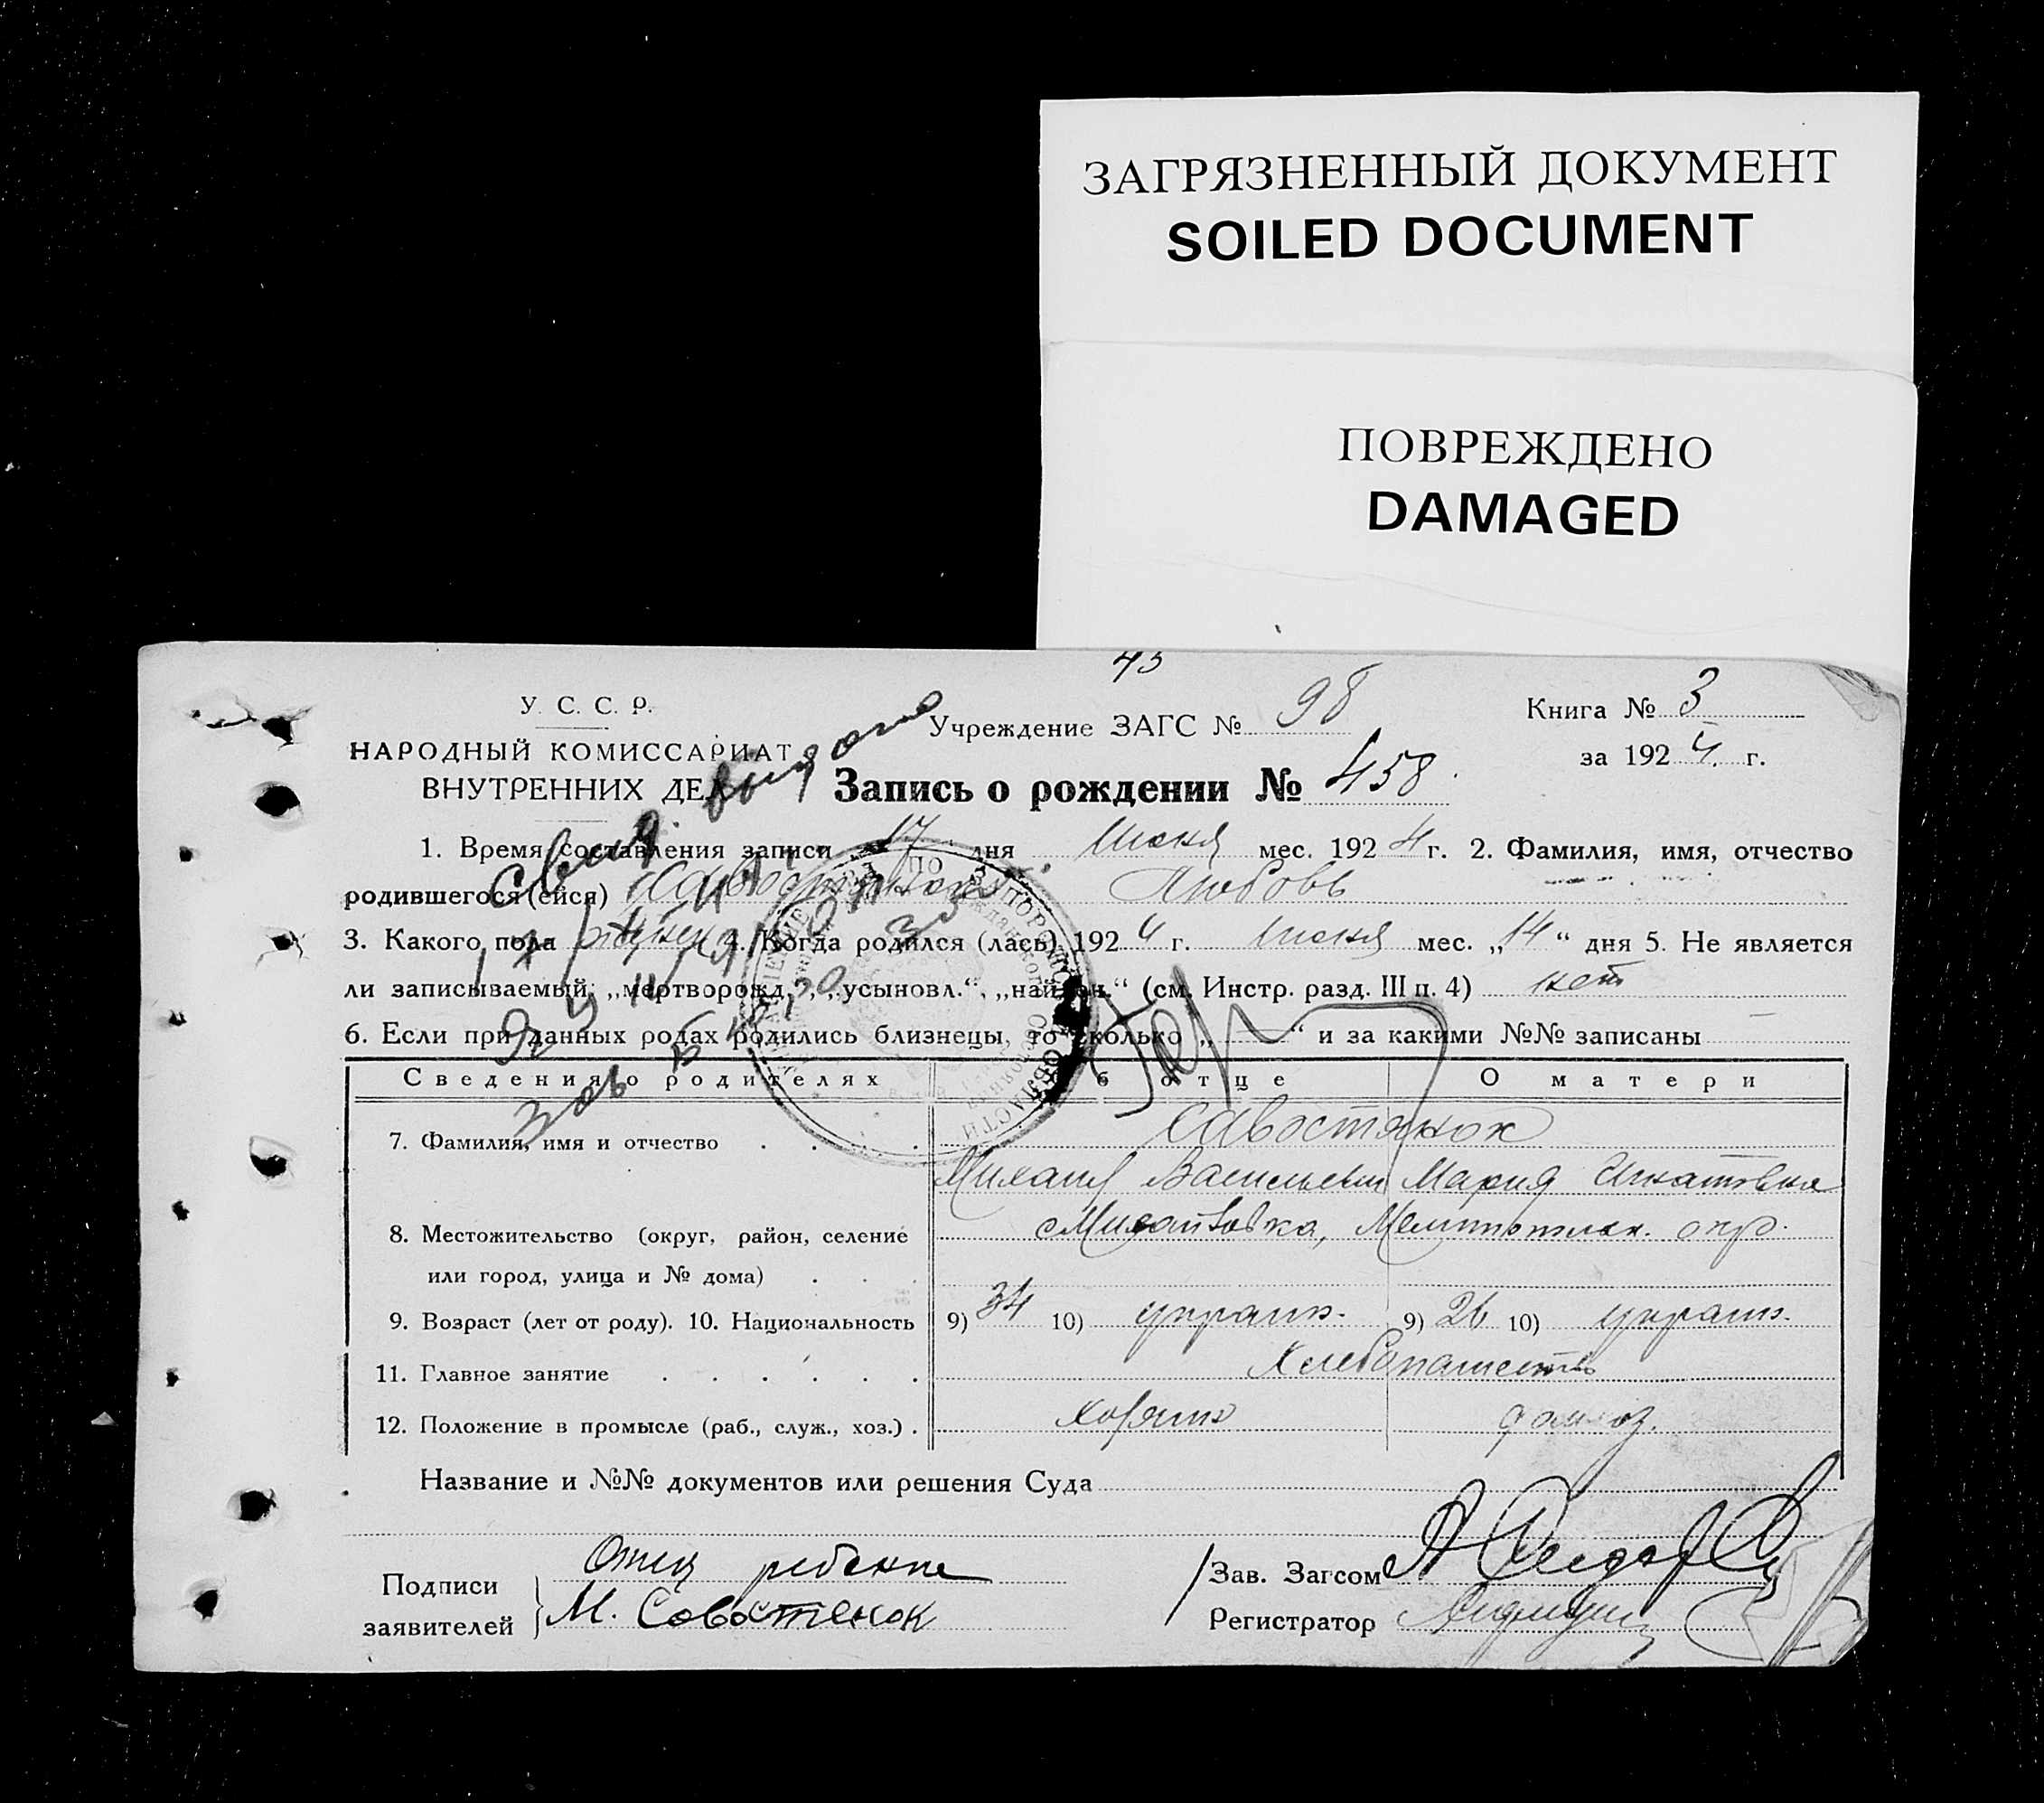 ЗАГРЯЗНЕННЫЙ ДОКУМЕНТ
SOILED DOCUMENT
ПОВРЕЖДЕНО
DAMAGED
У. С. С. Р.
НАРОДНЫЙ КОМИССАРИАТ
ВНУТРЕННИХ ДЕЛ
Учреждение ЗАГС № 98
Книга № 3
за 1924 г.
Запись о рождении № 458
свид. выдано
1. Время составления записи 17 дня Июня мес. 1924 г. 2. Фамилия, имя, отчество
родившегося (ейся) Савостянок Любовь
3. Какого пола 4. Когда родился (лась) 1924 г. Июня мес. „14“ дня 5. Не является
ли записываемый: „мертворожд.“, „усыновл.“, „найден.“ (см. Инстр. разд. III п. 4) нет
6. Если при данных родах родились близнецы, то сколько „ “ и за какими №№ записаны
Сведения о родителях Об отце О матери
7. Фамилия, имя и отчество Савостянок
Михаил Васильевич Мария Игнатовна
8. Местожительство (округ, район, селение с Михайловка, Мелитопольск. окр.
или город, улица и № дома)
9. Возраст (лет от роду). 10. Национальность 9) 34 10) украин. 9) 26 10) украин.
11. Главное занятие Хлебопашеств
12. Положение в промысле (раб., служ., хоз.) хозяин домхоз.
Название и №№ документов или решения Суда
Подписи Отец ребенка
заявителей М. Совостенок
Зав. Загсом
Регистратор